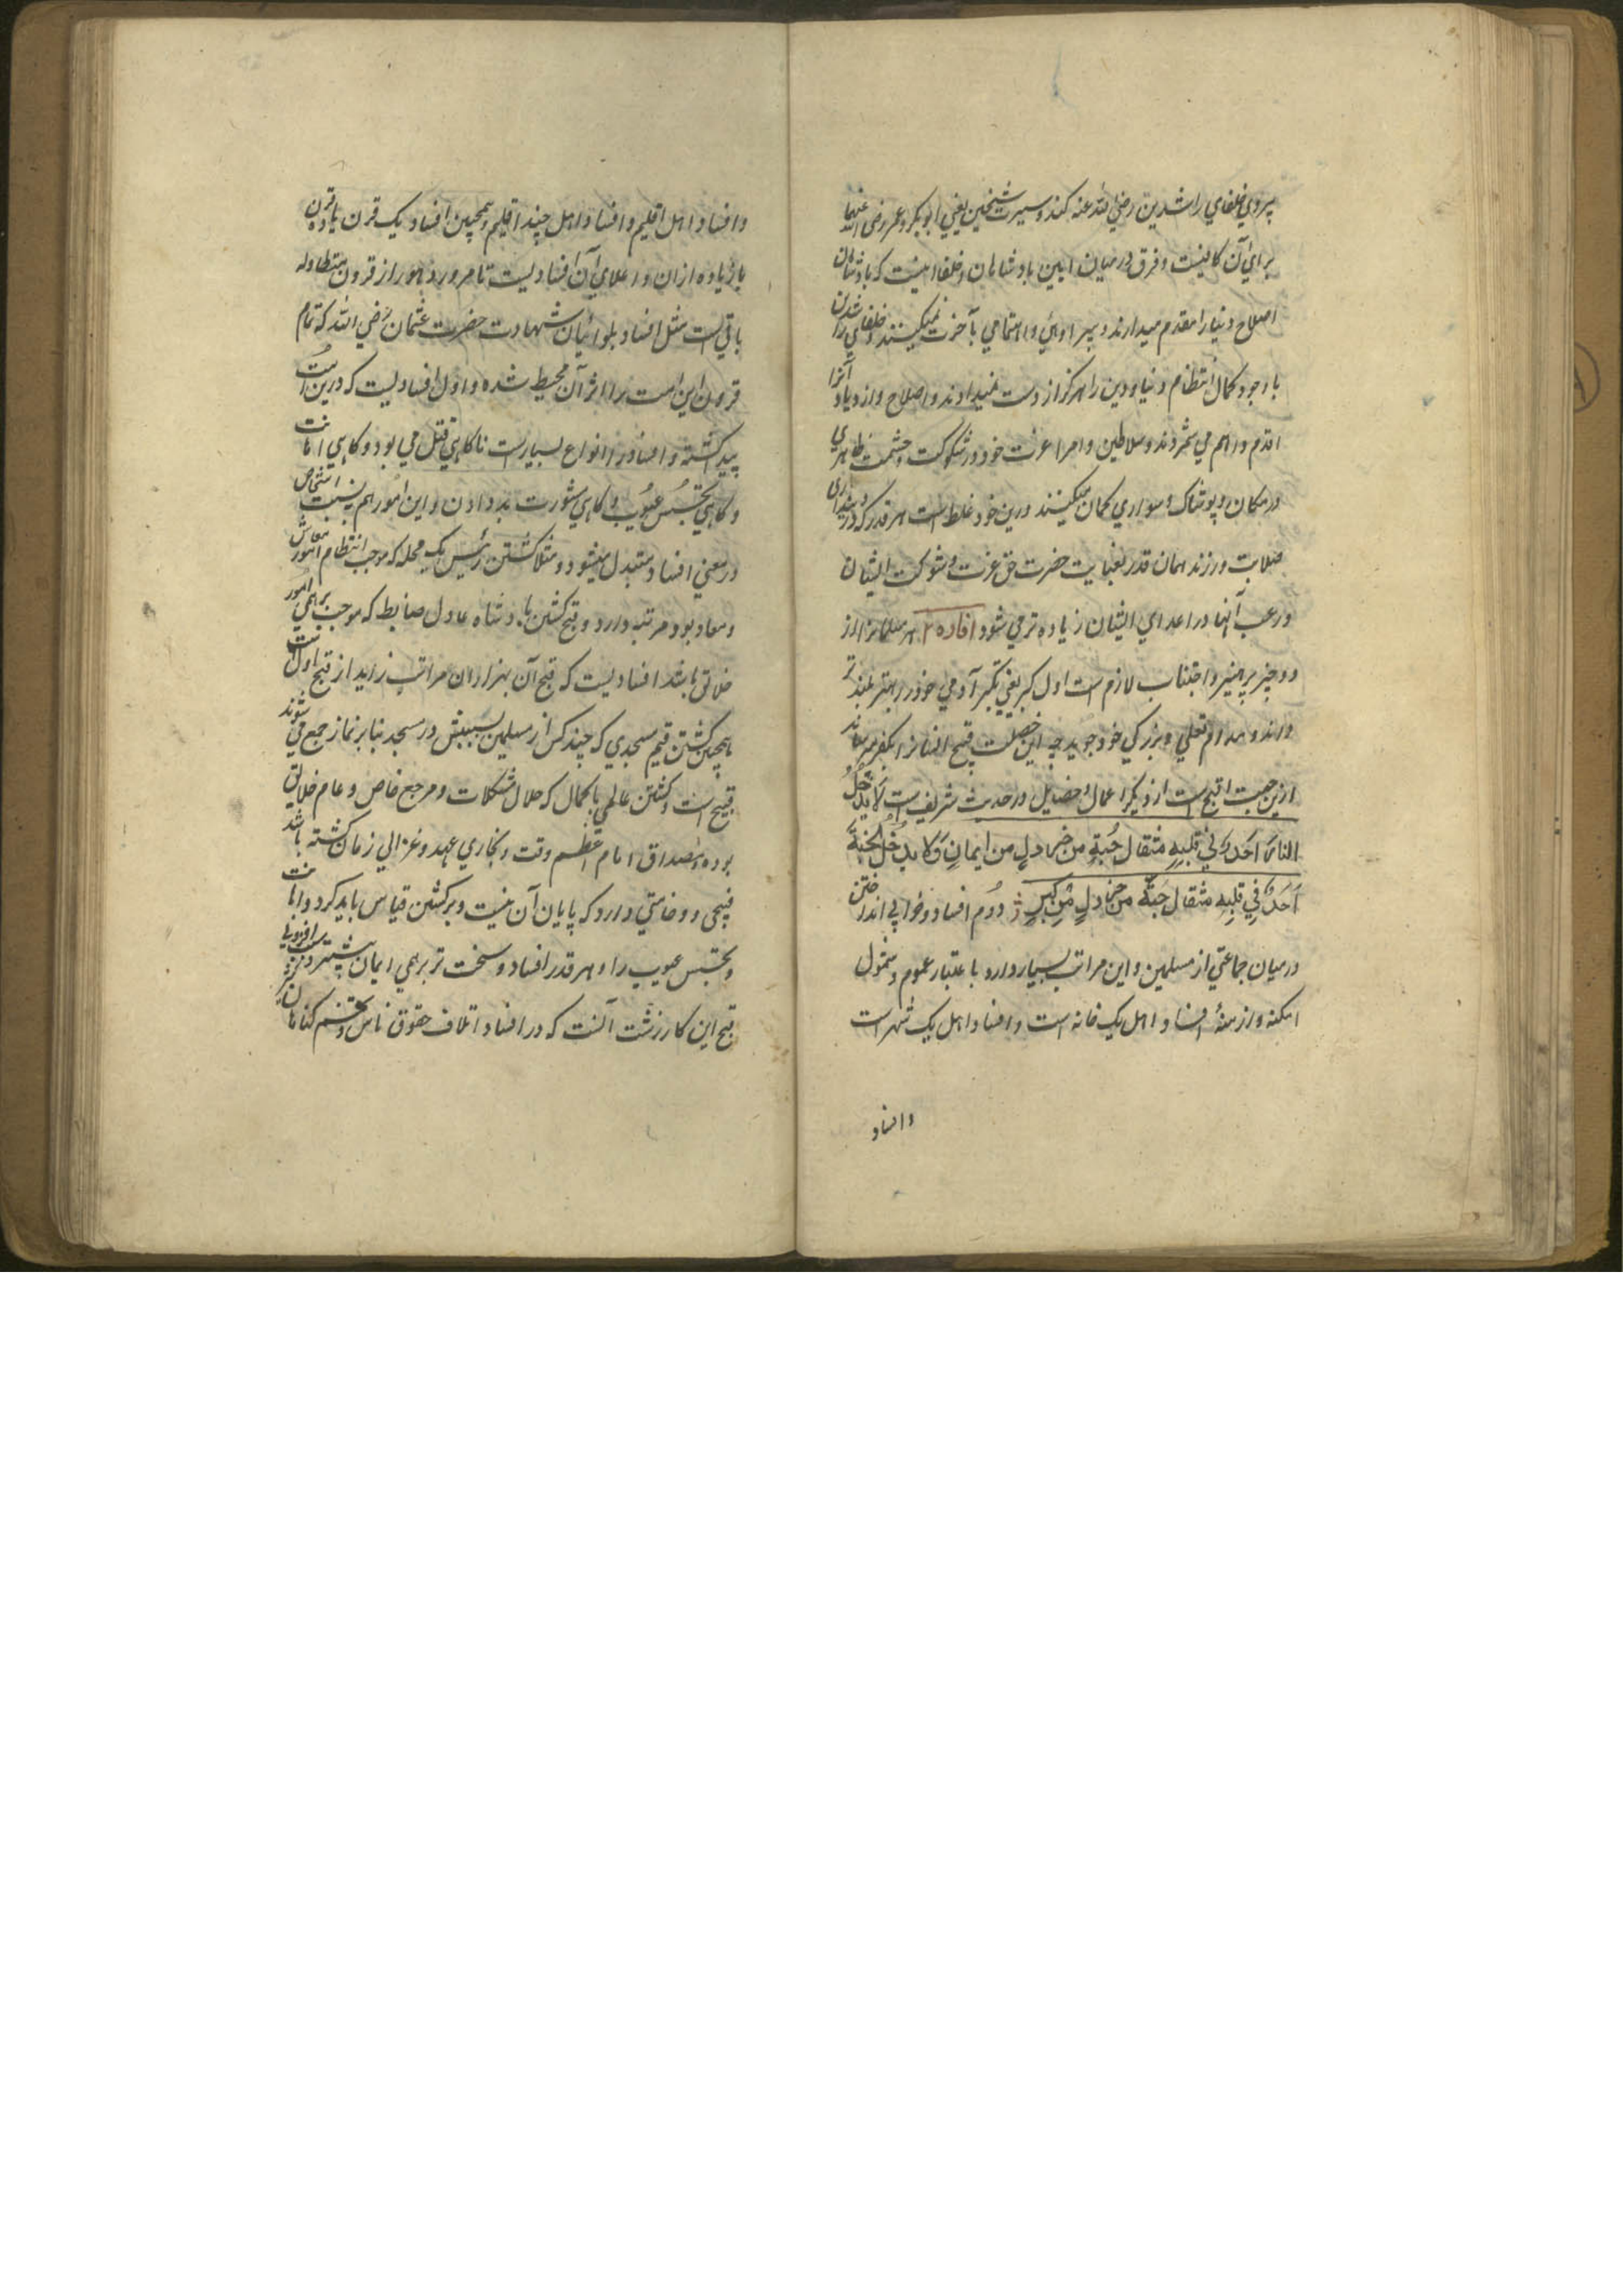 پیروی خلفاي راشدین رضي الله عنه کنند و سیرت شیخین یعني ابوبکر و عمر رضی الله عنهما
براي آن کافیست و فرق درمیان آیین بادشاهان و خلفا اینست که بادشاهان
اصلاح دنیا را مقدم میدارند و پروائي و اهتمامي بآخرت نمیکنند و خلفاي راشدین
با وجود کمال انتظام دنیا و دین را هرگز از دست نمیدادند و اصلاح و ازدیاد آنرا
اقدم و اهم مي شمردند و سلاطین و امرا عزت خود در شوکت و حشمت ظاهري
در مکان و پوشاک و سواري گمان میکنند و این خود غلط است هر قدر که در دینداري
صلابت ورزند همان قدر بعنایت حضرت حق عزت و شوکت ایشان
و رعب آنها در اعداي ایشان زیاده تر مي شود افاده ۲ هر مسلمان را از
دو چیز پرهیز و اجتناب لازم است اول کبر یعني تکبر آدمي خود را بهتر بلند تر
داند و مدام تعلي و بزرگي خود جوید چه این خصلت قبیح انسان را بکفر میرساند
ازین جهت اقبح است از دیگر اعمال و خصایل و در حدیث شریف است لا یدخل
النار احد في قلبه مثقال حبة من خردل من ایمان ولا یدخل الجنة
احد في قلبه مثقال حبة من خردل من کبر دوم افساد و خرابي انداختن
درمیان جماعتي از مسلمین و این مراتب بسیار دارد باعتبار عموم و شمول
امکنه و ازمنه افساد اهل یک خانه است و افساد اهل یک شهر است
و افساد
و افساد اهل اقلیم و افساد اهل چند اقلیم و همچنین افساد یک قرن یا دو قرن
یا زیاده ازان و اعلاي آن افسادیست تا مرور دهور از قرون متطاوله
باقي است مثل افساد بلوائیان شهادت حضرت عثمان رضي الله که تمام
قرون این امت را اثر آن محیط شده و اول افسادیست که درین امت
پیدا گشته و افساد را انواع بسیار است گاهي قتل مي بود و گاهي اهانت
و گاهي تجسس عیوب و گاهي مشورت بد دادن و این امور هم به نسبت اشخاص
در معني افساد متبدل میشود و مثلا کشتن رئیس یک محله که موجب انتظام امور معاش
و معاد بود مرتبه دارد و قبح کشتن بادشاه عادل ضابط که موجب برهمي امور
خلائق باشد افسادیست که قبح آن بهزاران مراتب زاید از قبح اول است
همچنین کشتن قیم مسجدي که چند کس از مسلمین بسببش در مسجد بنابر نماز جمع مي شوند
قبیح است و کشتن عالمي باکمال که حلال مشکلات و مرجع خاص و عام خلائق
بوده و مصداق امام اعظم وقت و بخاري عهد و غزالي زمان گشته باشد
قبحي و وخامتي دارد که پایان آن نیست و بر کشتن قیاس باید کرد اهانت
و تجسس عیوب را و هر قدر افساد و سخت تر برهمي ایمان بیشتر و
قبح این کار زشت آنست که در افساد اتلاف حقوق ناس و گناهان